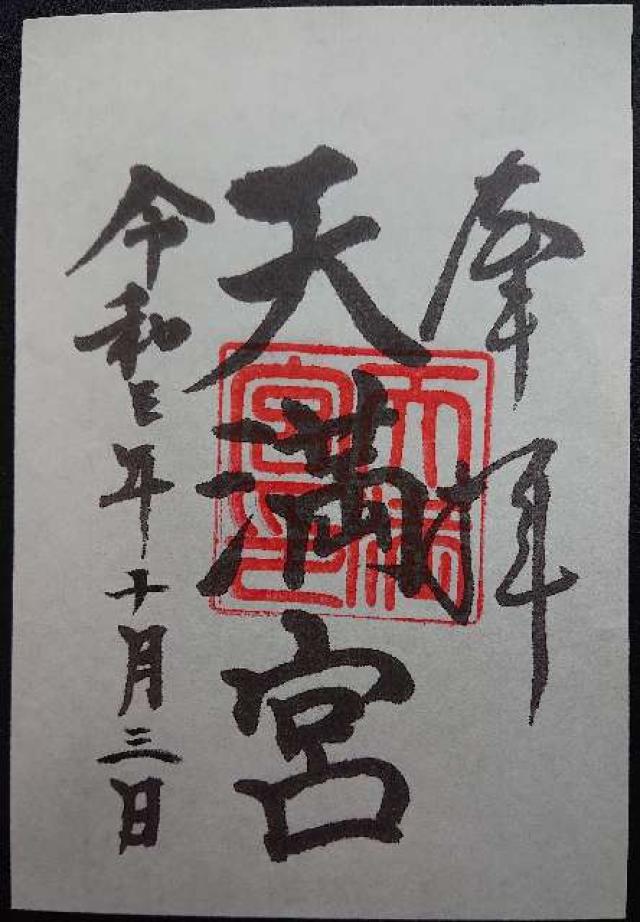 奉拝
天満宮
天満宮印
令和三年十月三日